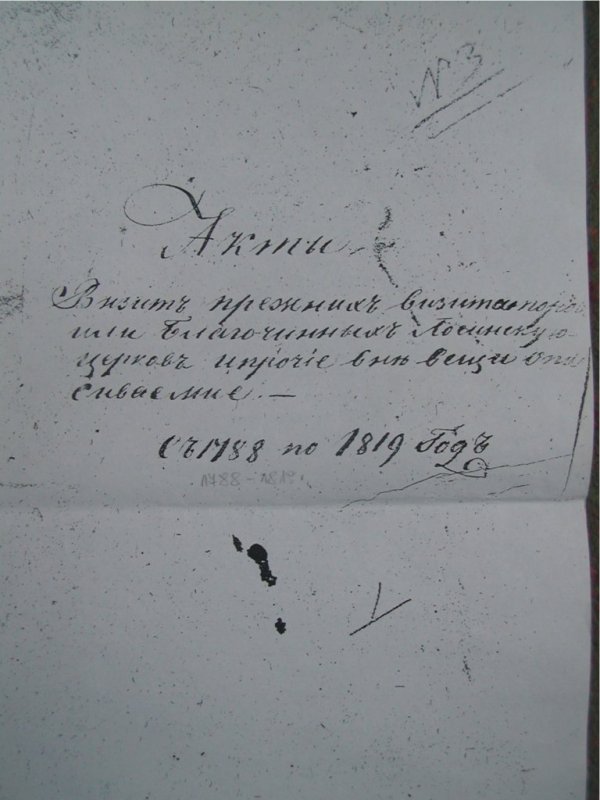 № 3
Акты
Визитъ прежнихъ визитаторовъ
или Благочинныхъ Лосинскую
церковь и прочіе в нѣ вещи опи
сиваемие. —
Съ 1788 по 1819 Годъ
1788-1819